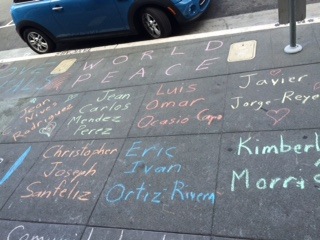 WORLD
PEACE
Jean
Nives
Rodriguez
Jean
Carlos
Mendez
Perez
Luis
Omar
Ocasio Capo
Javier
Jorge-Reye
Christopher
Joseph
Sanfeliz
Eric
Ivan
Ortiz Rivera
Kimberl
Morris